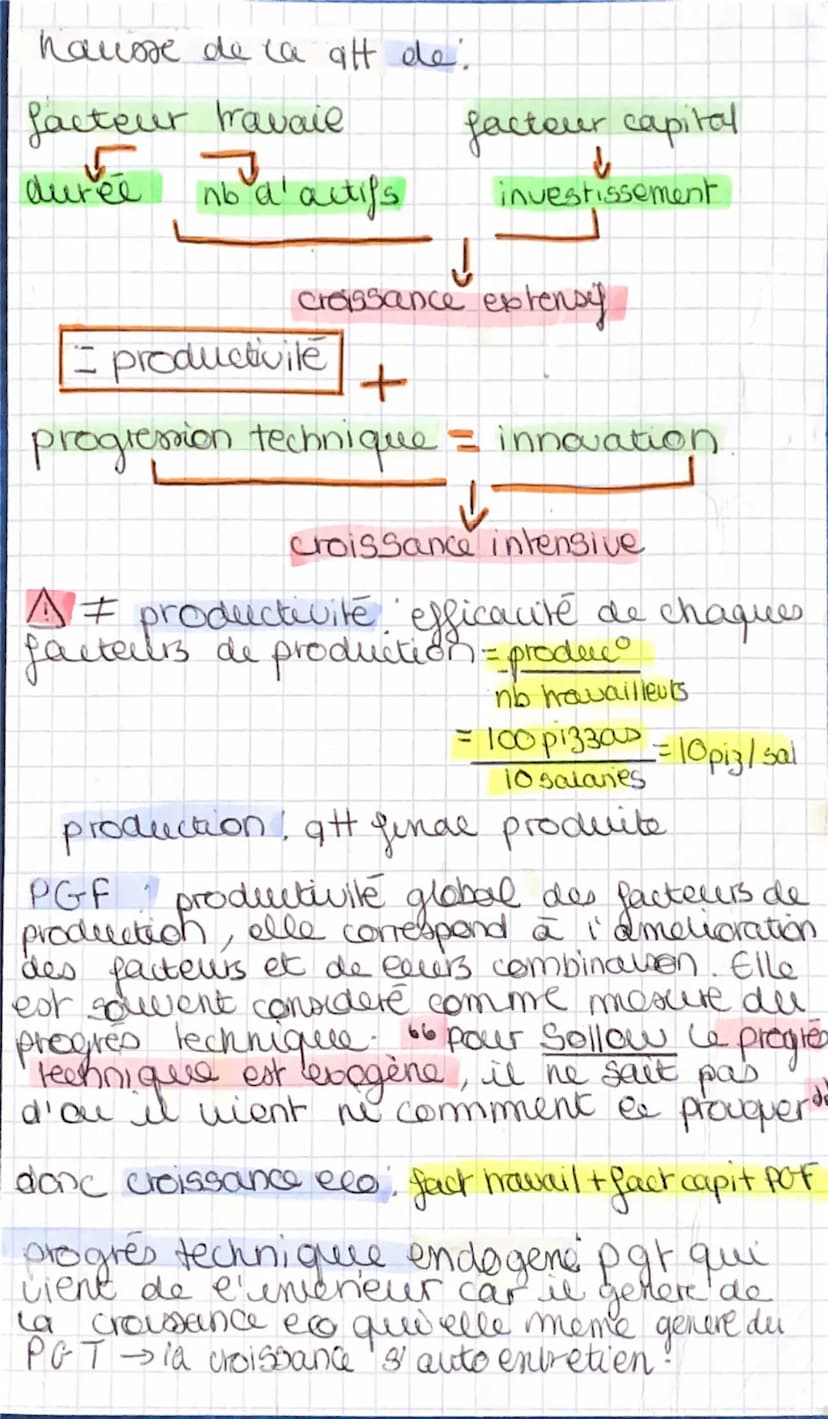 hausse de la qtt de :
facteur travaie facteur capital
durée nb d'actifs investissement
croissance extensif
= productivité +
progression technique = innovation
croissance intensive
⚠ ≠ productivité : efficacité de chaques
facteurs de production = produc°
nb travailleurs
= 100 pizzas = 10 piz / sal
10 salariés
production : qtt finae produite
PGF : productivité global des facteurs de
production, elle correspond à l'amelioration
des facteurs et de leurs combinaison. Elle
est souvent consideré comme mesure du
progrès technique. " pour Sollow le progrès
technique est exogène, il ne sait pas
d'ou il vient ni commment le provquer "
donc croissance eco : fact travail + fact capit PGF
progrès technique endogene pgt qui
vient de l'interieur car il genere de
la croissance eco qui elle meme genere du
PGT → la croissance s'auto entretien.